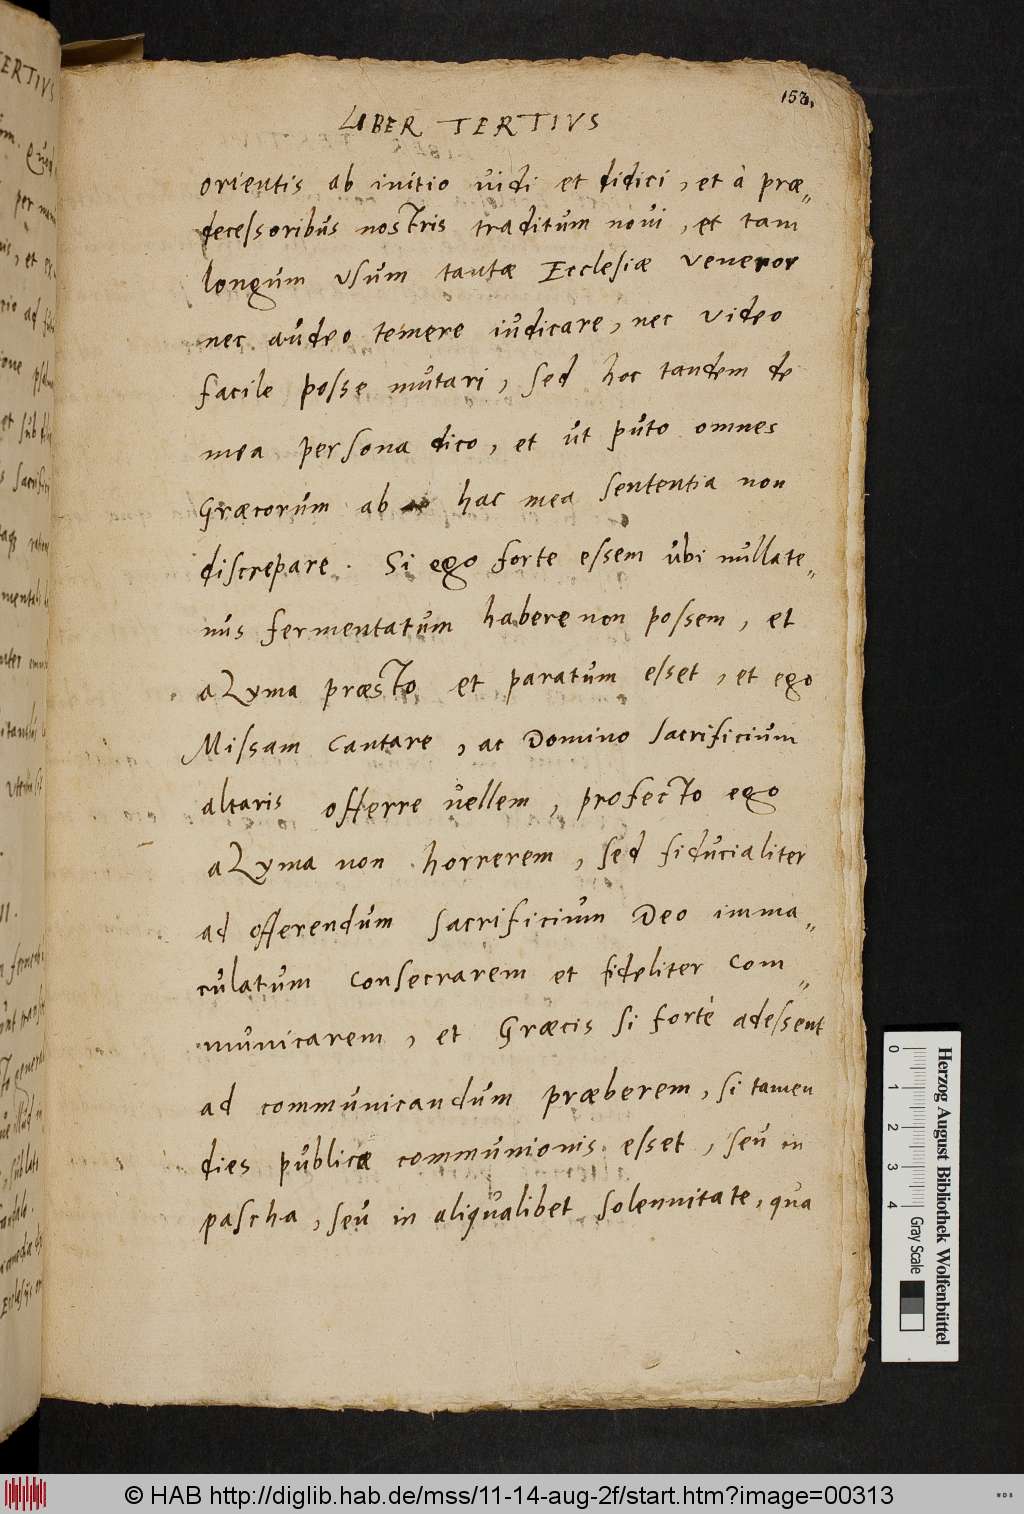 153.
LIBER TERTIVS
orientis ab initio uidi et didici, et à præ„
decessoribus nostris traditum noui, et tam
longum vsum tantæ Ecclesiæ veneror
nec audeo temere iudicare, nec video
facile posse mutari, sed hoc tandem de
mea persona dico, et ut puto omnes
Græcorum ab hac mea sententia non
discrepare. Si ego forte essem ubi nullate„
nus fermentatum habere non possem, et
aZyma præsto et paratum esset, et ego
Missam cantare, ac Domino sacrificium
altaris offerre vellem, profecto ego
aZyma non horrerem, sed fiducialiter
ad offerendum sacrificium Deo imma„
culatum consecrarem et fideliter com„
municarem, et Græcis si forte adessent
ad communicandum præberem, si tamen
dies publicæ communionis esset, seu in
pascha, seu in aliqualibet solennitate, qua
Herzog August Bibliothek Wolfenbüttel
0 1 2 3 4 Gray Scale
© HAB http://diglib.hab.de/mss/11-14-aug-2f/start.htm?image=00313